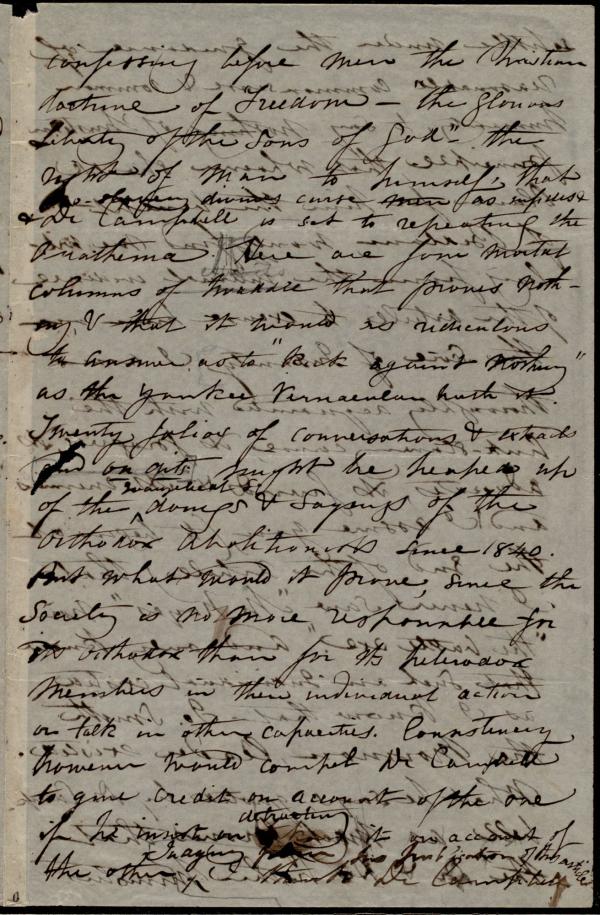 confessing before men the Christian
doctrine of Freedom — the glorious
liberty of the Sons of God" — the
right of man to himself, that
pro-slavery divines curse men as infidels
& Dr Campbell is set to repeating the
Anathema. Here are four mortal
columns of twaddle that proves noth-
ing, & that it would as ridiculous
to answer as to "kick against nothing"
as the Yankee Vernacular hath it.
Twenty folios of conversations & extracts
and on dits might be heaped up
of the evangelical doings & sayings of the
Orthodox Abolitionists since 1840.
But what would it prove, since the
Society is no more responsible for
its orthodox than for its heterodox
members in their individual action
or talk in other capacities. Consistency
however would compel Dr Campbell
to give credit on account of the one
if he insist on detracting it on account of
the other. Dr Campbell